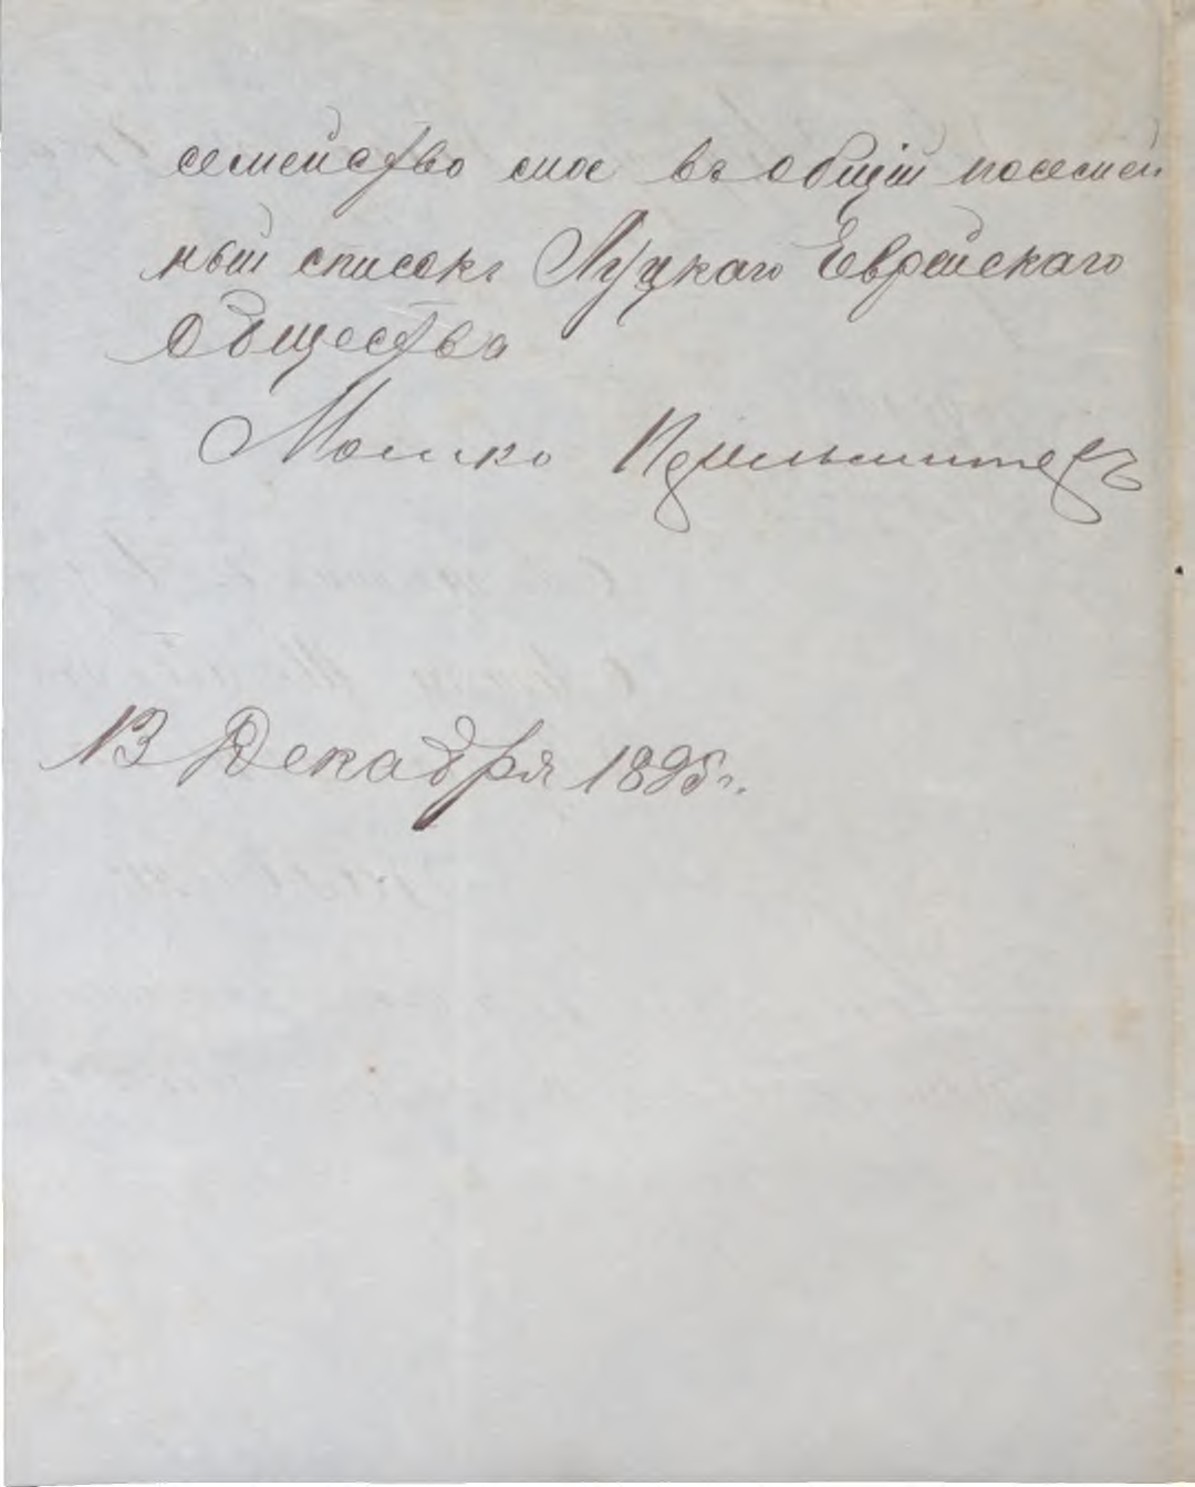 семейство мое въ общій посемей
ный списокъ Луцкаго Еврейскаго
Общества
Мошко
13 Декабря 1895 г.